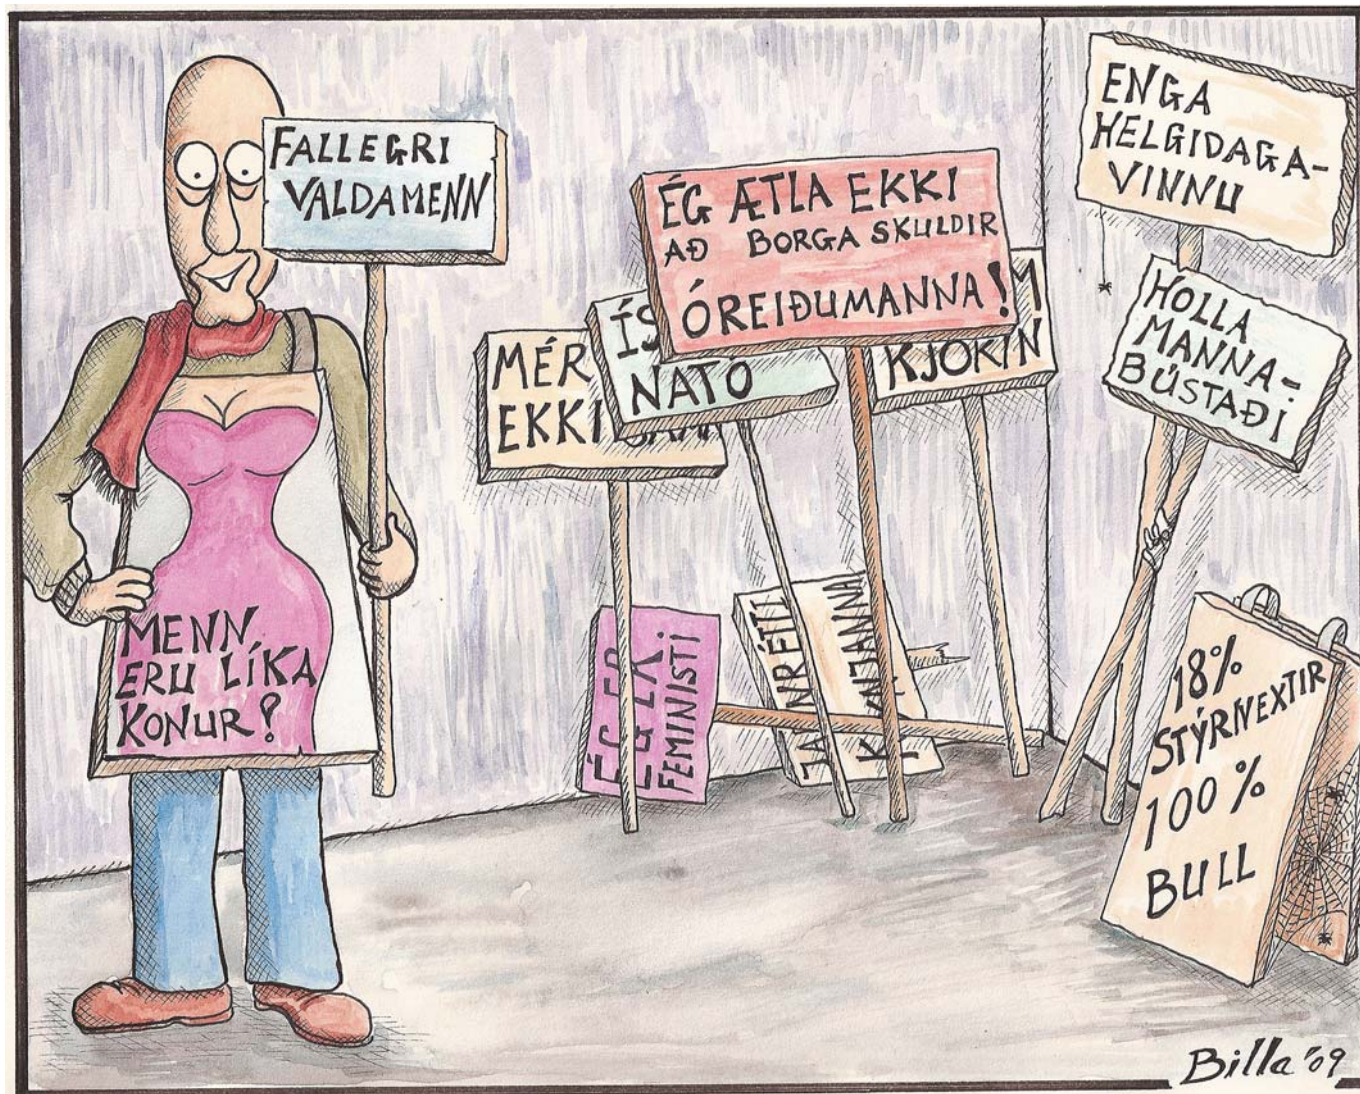 FALLEGRI
VALDAMENN
MENN
ERU LÍKA
KONUR?
MÉR
EKKI
ÍS
NATO
ÉG ÆTLA EKKI
AÐ BORGA SKULDIR
ÓREIÐUMANNA!
M
KJÖRIN
ENGA
HELGIDAGA-
VINNU
HOLLA
MANNA-
BÚSTAÐI
ÉG ER
FEMINISTI
JAFNRÉTTI
KYNJANNA
18%
STÝRIVEXTIR
100%
BULL
Billa '09